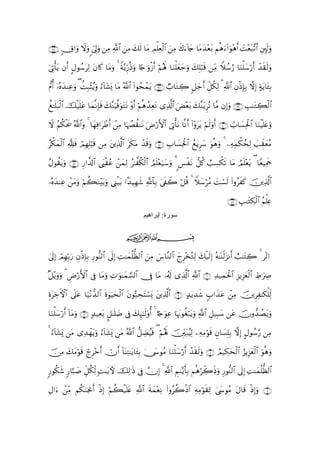 وَلَئِنِ ٱتَّبَعْتَ أَهْوَآءَهُم بَعْدَ مَا جَآءَكَ مِنَ ٱلْعِلْمِ مَا لَكَ مِنَ ٱللَّهِ مِن وَلِىٍّ وَلَا وَاقٍ ﴿٣٧﴾
وَلَقَدْ أَرْسَلْنَا رُسُلًا مِّن قَبْلِكَ وَجَعَلْنَا لَهُمْ أَزْوَٰجًا وَذُرِّيَّةً ۚ وَمَا كَانَ لِرَسُولٍ أَن يَأْتِىَ
بِـَٔايَةٍ إِلَّا بِإِذْنِ ٱللَّهِ ۗ لِكُلِّ أَجَلٍ كِتَابٌ ﴿٣٨﴾ يَمْحُوا۟ ٱللَّهُ مَا يَشَآءُ وَيُثْبِتُ ۖ وَعِندَهُۥٓ أُمُّ
ٱلْكِتَٰبِ ﴿٣٩﴾ وَإِن مَّا نُرِيَنَّكَ بَعْضَ ٱلَّذِى نَعِدُهُمْ أَوْ نَتَوَفَّيَنَّكَ فَإِنَّمَا عَلَيْكَ ٱلْبَلَٰغُ
وَعَلَيْنَا ٱلْحِسَابُ ﴿٤٠﴾ أَوَلَمْ يَرَوْا۟ أَنَّا نَأْتِى ٱلْأَرْضَ نَنقُصُهَا مِنْ أَطْرَافِهَا ۚ وَٱللَّهُ يَحْكُمُ لَا
مُعَقِّبَ لِحُكْمِهِۦ ۚ وَهُوَ سَرِيعُ ٱلْحِسَابِ ﴿٤١﴾ وَقَدْ مَكَرَ ٱلَّذِينَ مِن قَبْلِهِمْ فَلِلَّهِ ٱلْمَكْرُ
جَمِيعًا ۖ يَعْلَمُ مَا تَكْسِبُ كُلُّ نَفْسٍ ۗ وَسَيَعْلَمُ ٱلْكُفَّٰرُ لِمَنْ عُقْبَى ٱلدَّارِ ﴿٤٢﴾ وَيَقُولُ
ٱلَّذِينَ كَفَرُوا۟ لَسْتَ مُرْسَلًا ۚ قُلْ كَفَىٰ بِٱللَّهِ شَهِيدًۢا بَيْنِى وَبَيْنَكُمْ وَمَنْ عِندَهُۥ
عِلْمُ ٱلْكِتَٰبِ ﴿٤٣﴾
سورة: إبراهيم
بِسْمِ ٱللَّهِ ٱلرَّحْمَٰنِ ٱلرَّحِيمِ
الٓر ۚ كِتَٰبٌ أَنزَلْنَٰهُ إِلَيْكَ لِتُخْرِجَ ٱلنَّاسَ مِنَ ٱلظُّلُمَٰتِ إِلَى ٱلنُّورِ بِإِذْنِ رَبِّهِمْ إِلَىٰ
صِرَٰطِ ٱلْعَزِيزِ ٱلْحَمِيدِ ﴿١﴾ ٱللَّهِ ٱلَّذِى لَهُۥ مَا فِى ٱلسَّمَٰوَٰتِ وَمَا فِى ٱلْأَرْضِ ۗ وَوَيْلٌ
لِّلْكَٰفِرِينَ مِنْ عَذَابٍ شَدِيدٍ ﴿٢﴾ ٱلَّذِينَ يَسْتَحِبُّونَ ٱلْحَيَوٰةَ ٱلدُّنْيَا عَلَى ٱلْـَٔاخِرَةِ
وَيَصُدُّونَ عَن سَبِيلِ ٱللَّهِ وَيَبْغُونَهَا عِوَجًا ۚ أُو۟لَٰٓئِكَ فِى ضَلَٰلٍۭ بَعِيدٍ ﴿٣﴾ وَمَآ أَرْسَلْنَا
مِن رَّسُولٍ إِلَّا بِلِسَانِ قَوْمِهِۦ لِيُبَيِّنَ لَهُمْ ۖ فَيُضِلُّ ٱللَّهُ مَن يَشَآءُ وَيَهْدِى مَن يَشَآءُ ۚ
وَهُوَ ٱلْعَزِيزُ ٱلْحَكِيمُ ﴿٤﴾ وَلَقَدْ أَرْسَلْنَا مُوسَىٰ بِـَٔايَٰتِنَآ أَنْ أَخْرِجْ قَوْمَكَ مِنَ
ٱلظُّلُمَٰتِ إِلَى ٱلنُّورِ وَذَكِّرْهُم بِأَيَّىٰمِ ٱللَّهِ ۚ إِنَّ فِى ذَٰلِكَ لَـَٔايَٰتٍ لِّكُلِّ صَبَّارٍ شَكُورٍ
﴿٥﴾ وَإِذْ قَالَ مُوسَىٰ لِقَوْمِهِ ٱذْكُرُوا۟ نِعْمَةَ ٱللَّهِ عَلَيْكُمْ إِذْ أَنجَىٰكُم مِّنْ ءَالِ